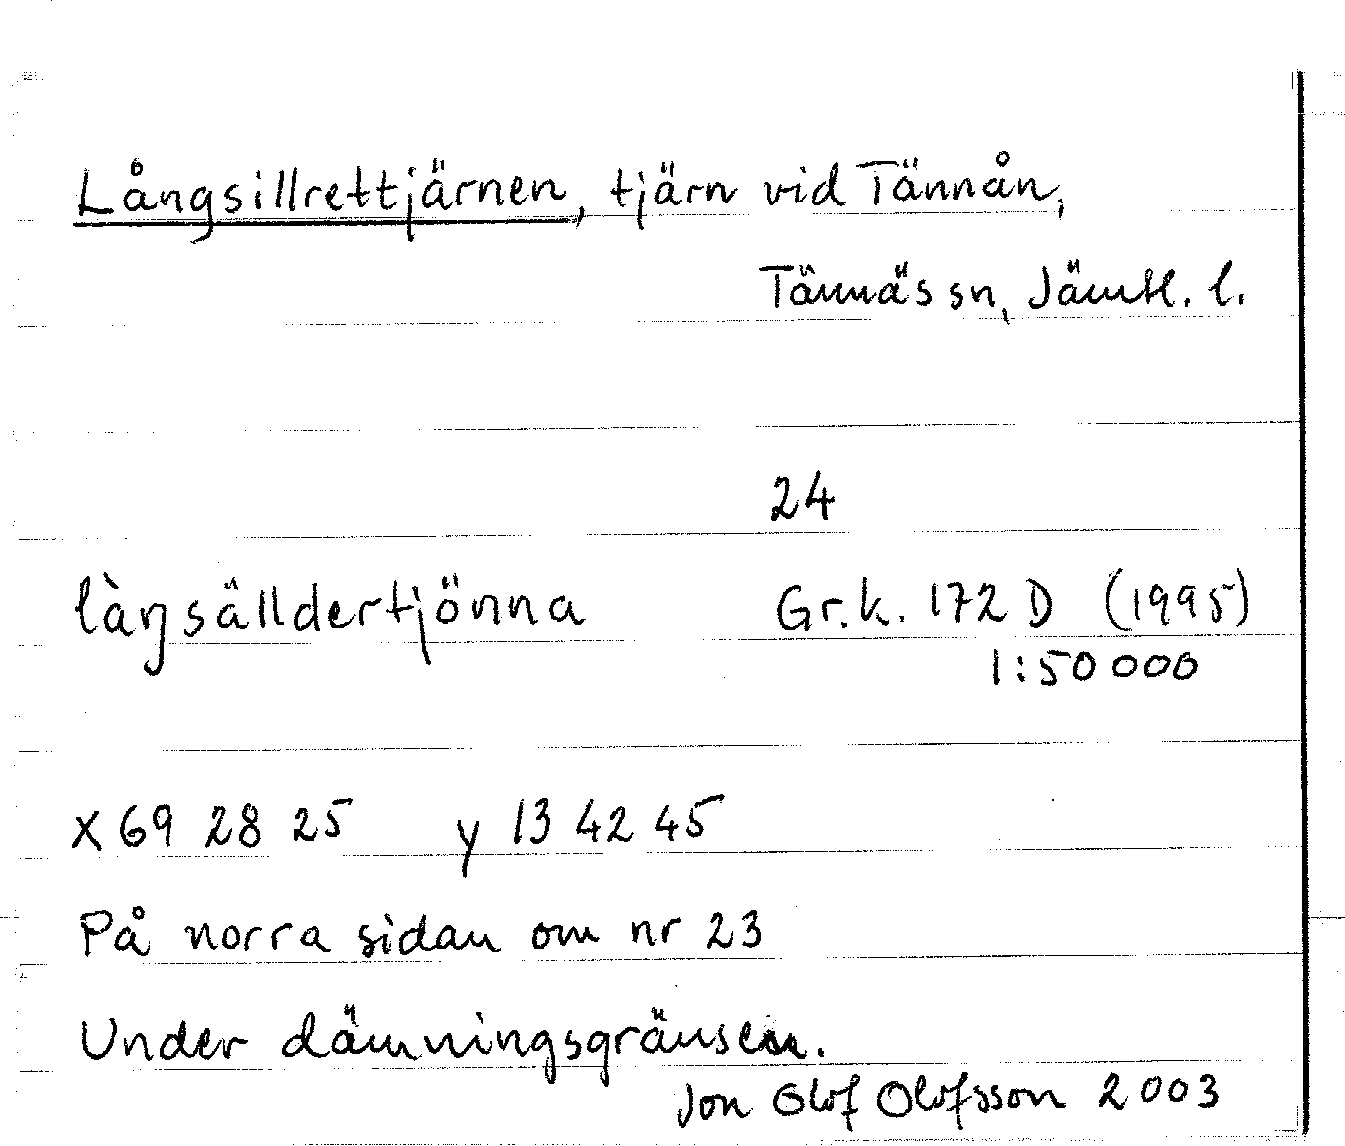 Långsillrettjärnen, tjärn vid Tännån,
Tännäs sn, Jämtl. l.
24
làŋsälldertjönna Gr.k. 172 D (1995)
1:50 000
x 69 28 25 y 13 42 45
På norra sidan om nr 23
Under dämningsgränsen.
Jon Olof Olofsson 2003